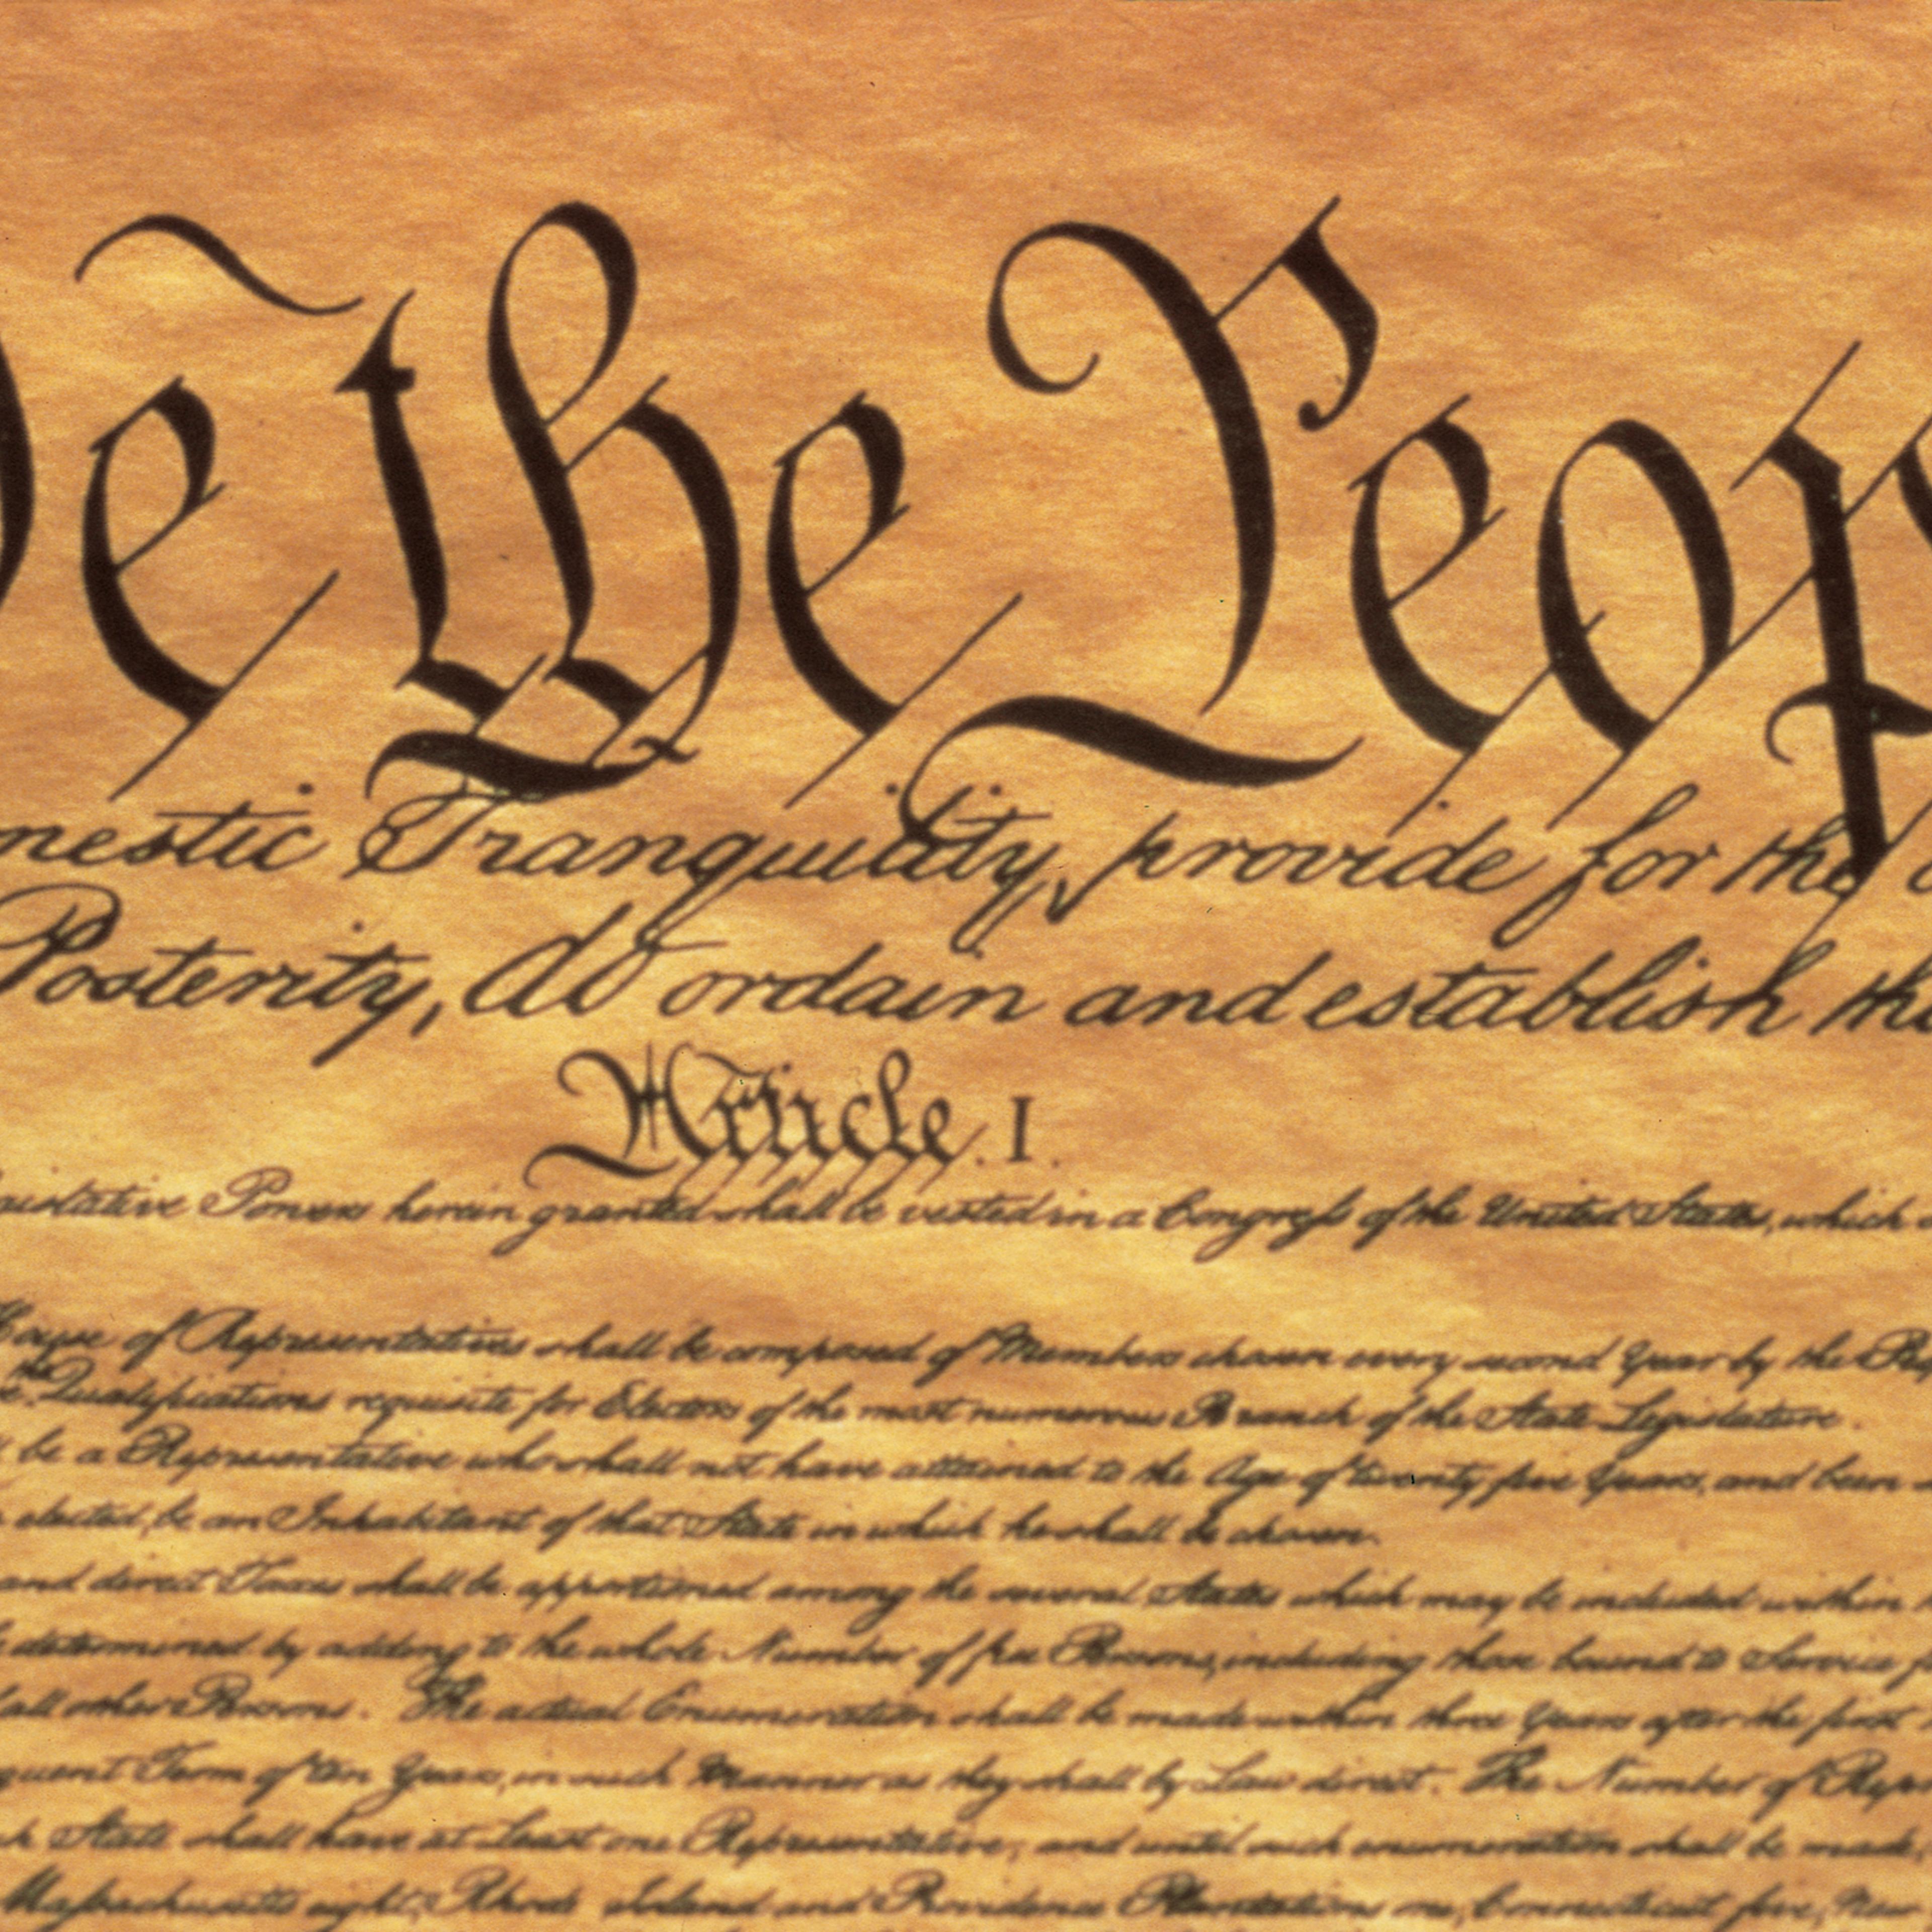 e the Peop
mestic Tranquility, provide for the
Posterity, do ordain and establish th
Article. I.
islative Powers herein granted shall be vested in a Congress of the United States, which
House of Representatives shall be composed of Members chosen every second Year by the Pe
the Qualifications requisite for Electors of the most numerous Branch of the State Legislature.
be a Representative who shall not have attained to the Age of twenty five Years, and been
elected, be an Inhabitant of that State in which he shall be chosen.
and direct Taxes shall be apportioned among the several States which may be included within
determined by adding to the whole Number of free Persons, including those bound to Service f
all other Persons. The actual Enumeration shall be made within three Years after the first
quent Term of ten Years, in such Manner as they shall by Law direct. The Number of Repr
h State shall have at Least one Representative; and until such enumeration shall be made,
Massachusetts eight, Rhode Island and Providence Plantations one, Connecticut five, New